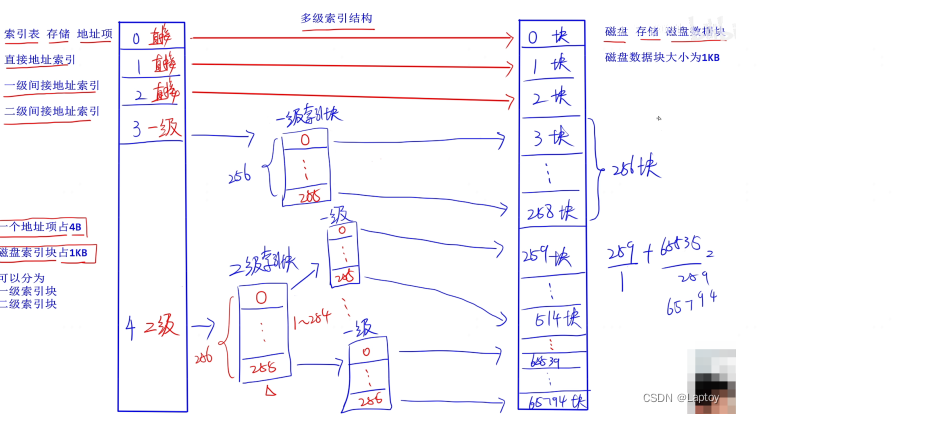 多级索引结构
索引表 存储 地址项
直接地址索引
一级间接地址索引
二级间接地址索引
一个地址项占4B
磁盘索引块占1KB
可以分为
一级索引块
二级索引块
0 直接
1 直接
2 直接
3 一级
4 二级
一级索引块
256
0
255
二级索引块
256
0
255
1~254
一级
0
255
一级
0
256
0 块
1 块
2 块
3 块
258 块
259 块
514 块
65539
65794 块
256块
磁盘 存储 磁盘数据块
磁盘数据块大小为1KB
259 + 65535
1
2
259
65794
CSDN @Laptoy